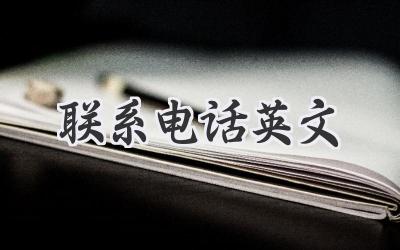 联系电话英文